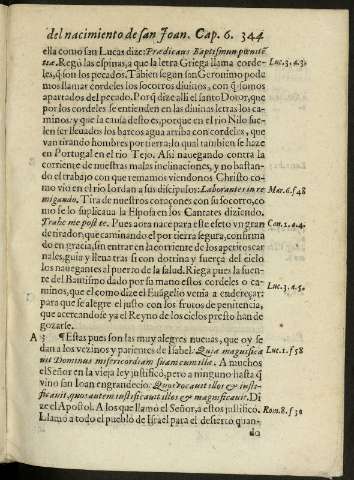 del nacimiento de san Ioan. Cap. 6. 344
ella como san Lucas dize: Prædicans Baptismun pœnitẽ
tiæ. Regó las espinas, a que la letra Griega llama corde- Luc. 3. a. 3.
les, q̃ son los pecados. Tãbien segun san Geronimo pode
mos llamar cordeles los socorros diuinos, con q̃ somos
apartados del pecado. Porq̃ dize alli el santo Dotor, que
por los cordeles se entienden en las diuinas letras los ca-
minos: y que la causa desto es, porque en el rio Nilo sue-
len ser lleuados los barcos agua arriba con cordeles, que
van tirando hombres por tierra; lo qual tambien se haze
en Portugal en el rio Tejo. Assi nauegando contra la
corriente de nuestras malas inclinaciones, y no bastan-
do el trabajo con que remamos viendonos Christo co-
mo vio en el rio Iordan a sus discipulos: Laborantes in re Mar. 6. f 48
migando. Tira de nuestros coraçones con su socorro, co
mo se lo suplicaua la Esposa en los Cantares diziendo.
Trahe me post te. Pues aora nace para esse efeto vn gran Can. 1. a. 4.
de tirador, que caminando el por tierra segura, confirma
do en gracia, sin entrar en la corriente de los apetitos car
nales, guia y lleua tras si con dotrina y fuerça del cielo
los nauegantes al puerto de la salud. Riega pues la fuen-
te del Bautismo dado por su mano estos cordeles o ca-
minos, que el como dize el Euãgelio venia a endereçar: Luc. 3. a. 5.
para que se alegre el justo con los frutos de penitencia,
que acercandose ya el Reyno de los cielos presto han de
gozarse.
A 3 ¶ Estas pues son las muy alegres nueuas, que oy se
dan a los vezinos y parientes de Isabel. Quia magnifica Luc. 1. f 58
uit Dominus misericordiam suam cum illa. A muchos
el Señor en la vieja ley justificó, pero a ninguno hasta q̃
vino san Ioan engrandecio. Quos vocauit illos & iusti-
ficauit, quos autem iustificauit illos & magnificauit. Di
ze el Apostol. A los que llamó el Señor, a estos justificó. Rom. 8. f 30
Llamó a todo el pueblo de Israel para el desierto quan-
do